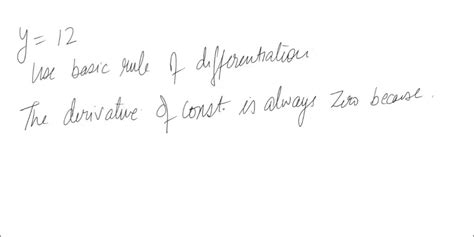 y = 12
Use basic rule of differentiation
The derivative of const. is always zero because.